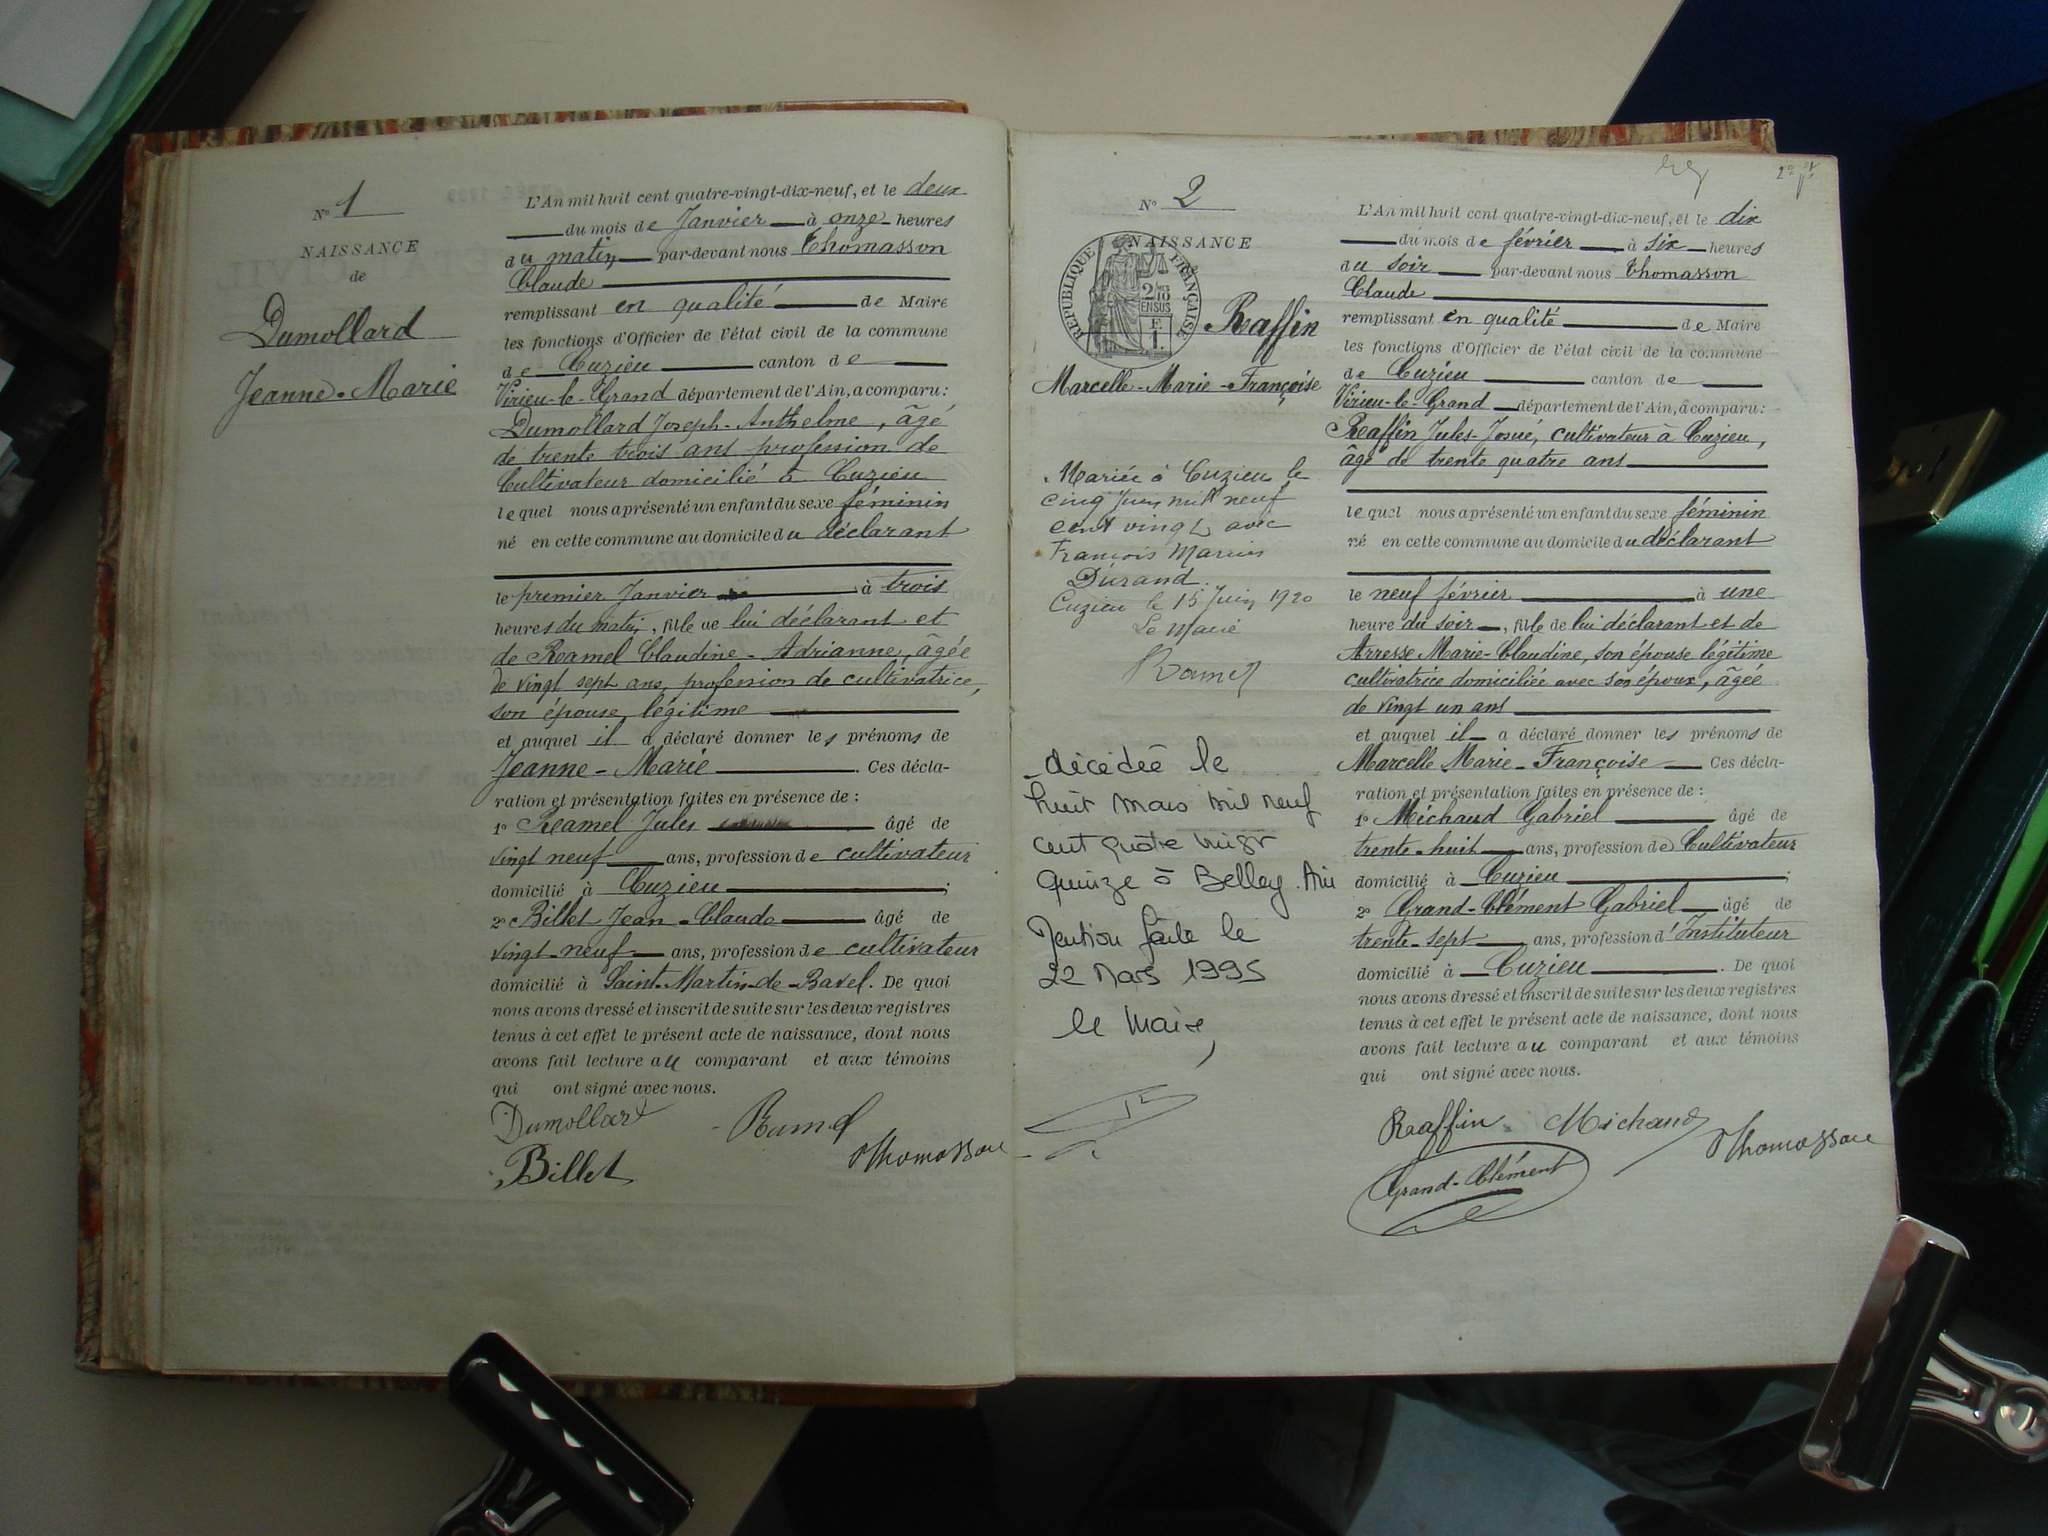 Nº 1
NAISSANCE
de
Dumollard
Jeanne-Marie
L'An mil huit cent quatre-vingt-dix-neuf, et le deux
du mois de Janvier à onze heures
du matin par-devant nous Thomasson
Claude
remplissant en qualité de Maire
les fonctions d'Officier de l'état civil de la commune
de Cuzieu canton de
Virieu-le-Grand département de l'Ain, a comparu :
Dumollard Joseph-Anthelme, âgé
de trente trois ans profession de
Cultivateur domicilié à Cuzieu
lequel nous a présenté un enfant du sexe féminin
né en cette commune au domicile du déclarant
le premier Janvier à trois
heures du matin, fille de lui déclarant et
de Ramel Claudine-Adrianne, âgée
de vingt sept ans, profession de cultivatrice,
son épouse légitime
et auquel il a déclaré donner les prénoms de
Jeanne-Marie. Ces décla-
ration et présentation faites en présence de :
1º Ramel Jules âgé de
vingt neuf ans, profession de cultivateur
domicilié à Cuzieu ;
2º Billet Jean-Claude âgé de
vingt-neuf ans, profession de cultivateur
domicilié à Saint-Martin-de-Bavel. De quoi
nous avons dressé et inscrit de suite sur les deux registres
tenus à cet effet le présent acte de naissance, dont nous
avons fait lecture au comparant et aux témoins
qui ont signé avec nous.
Dumollard Ramel
Billet Thomasson
Nº 2
NAISSANCE
RÉPUBLIQUE FRANÇAISE
2/10
EN SUS
Raffin
Marcelle-Marie-Françoise
Mariée à Cuzieu le
cinq juin mil neuf
cent vingt avec
François Marius
Durand.
Cuzieu le 15 Juin 1920
Le Maire
décédée le
huit mars mil neuf
cent quatre vingt
quinze à Belley. Ain
Mention faite le
22 Mars 1995
le Maire,
L'An mil huit cent quatre-vingt-dix-neuf, et le dix
du mois de février à six heures
du soir par-devant nous Thomasson
Claude
remplissant en qualité de Maire
les fonctions d'Officier de l'état civil de la commune
de Cuzieu canton de
Virieu-le-Grand département de l'Ain, a comparu :
Raffin Jules-Josué, cultivateur à Cuzieu,
âgé de trente quatre ans
lequel nous a présenté un enfant du sexe féminin
né en cette commune au domicile du déclarant
le neuf février à une
heure du soir, fille de lui déclarant et de
Arresse Marie-Claudine, son épouse légitime
cultivatrice domiciliée avec son époux, âgée
de vingt un ans
et auquel il a déclaré donner les prénoms de
Marcelle Marie-Françoise Ces décla-
ration et présentation faites en présence de :
1º Michaud Gabriel âgé de
trente-huit ans, profession de Cultivateur
domicilié à Cuzieu ;
2º Grand-Clément Gabriel âgé de
trente-sept ans, profession d'Instituteur
domicilié à Cuzieu. De quoi
nous avons dressé et inscrit de suite sur les deux registres
tenus à cet effet le présent acte de naissance, dont nous
avons fait lecture au comparant et aux témoins
qui ont signé avec nous.
Raffin Michaud Thomasson
Grand-Clément